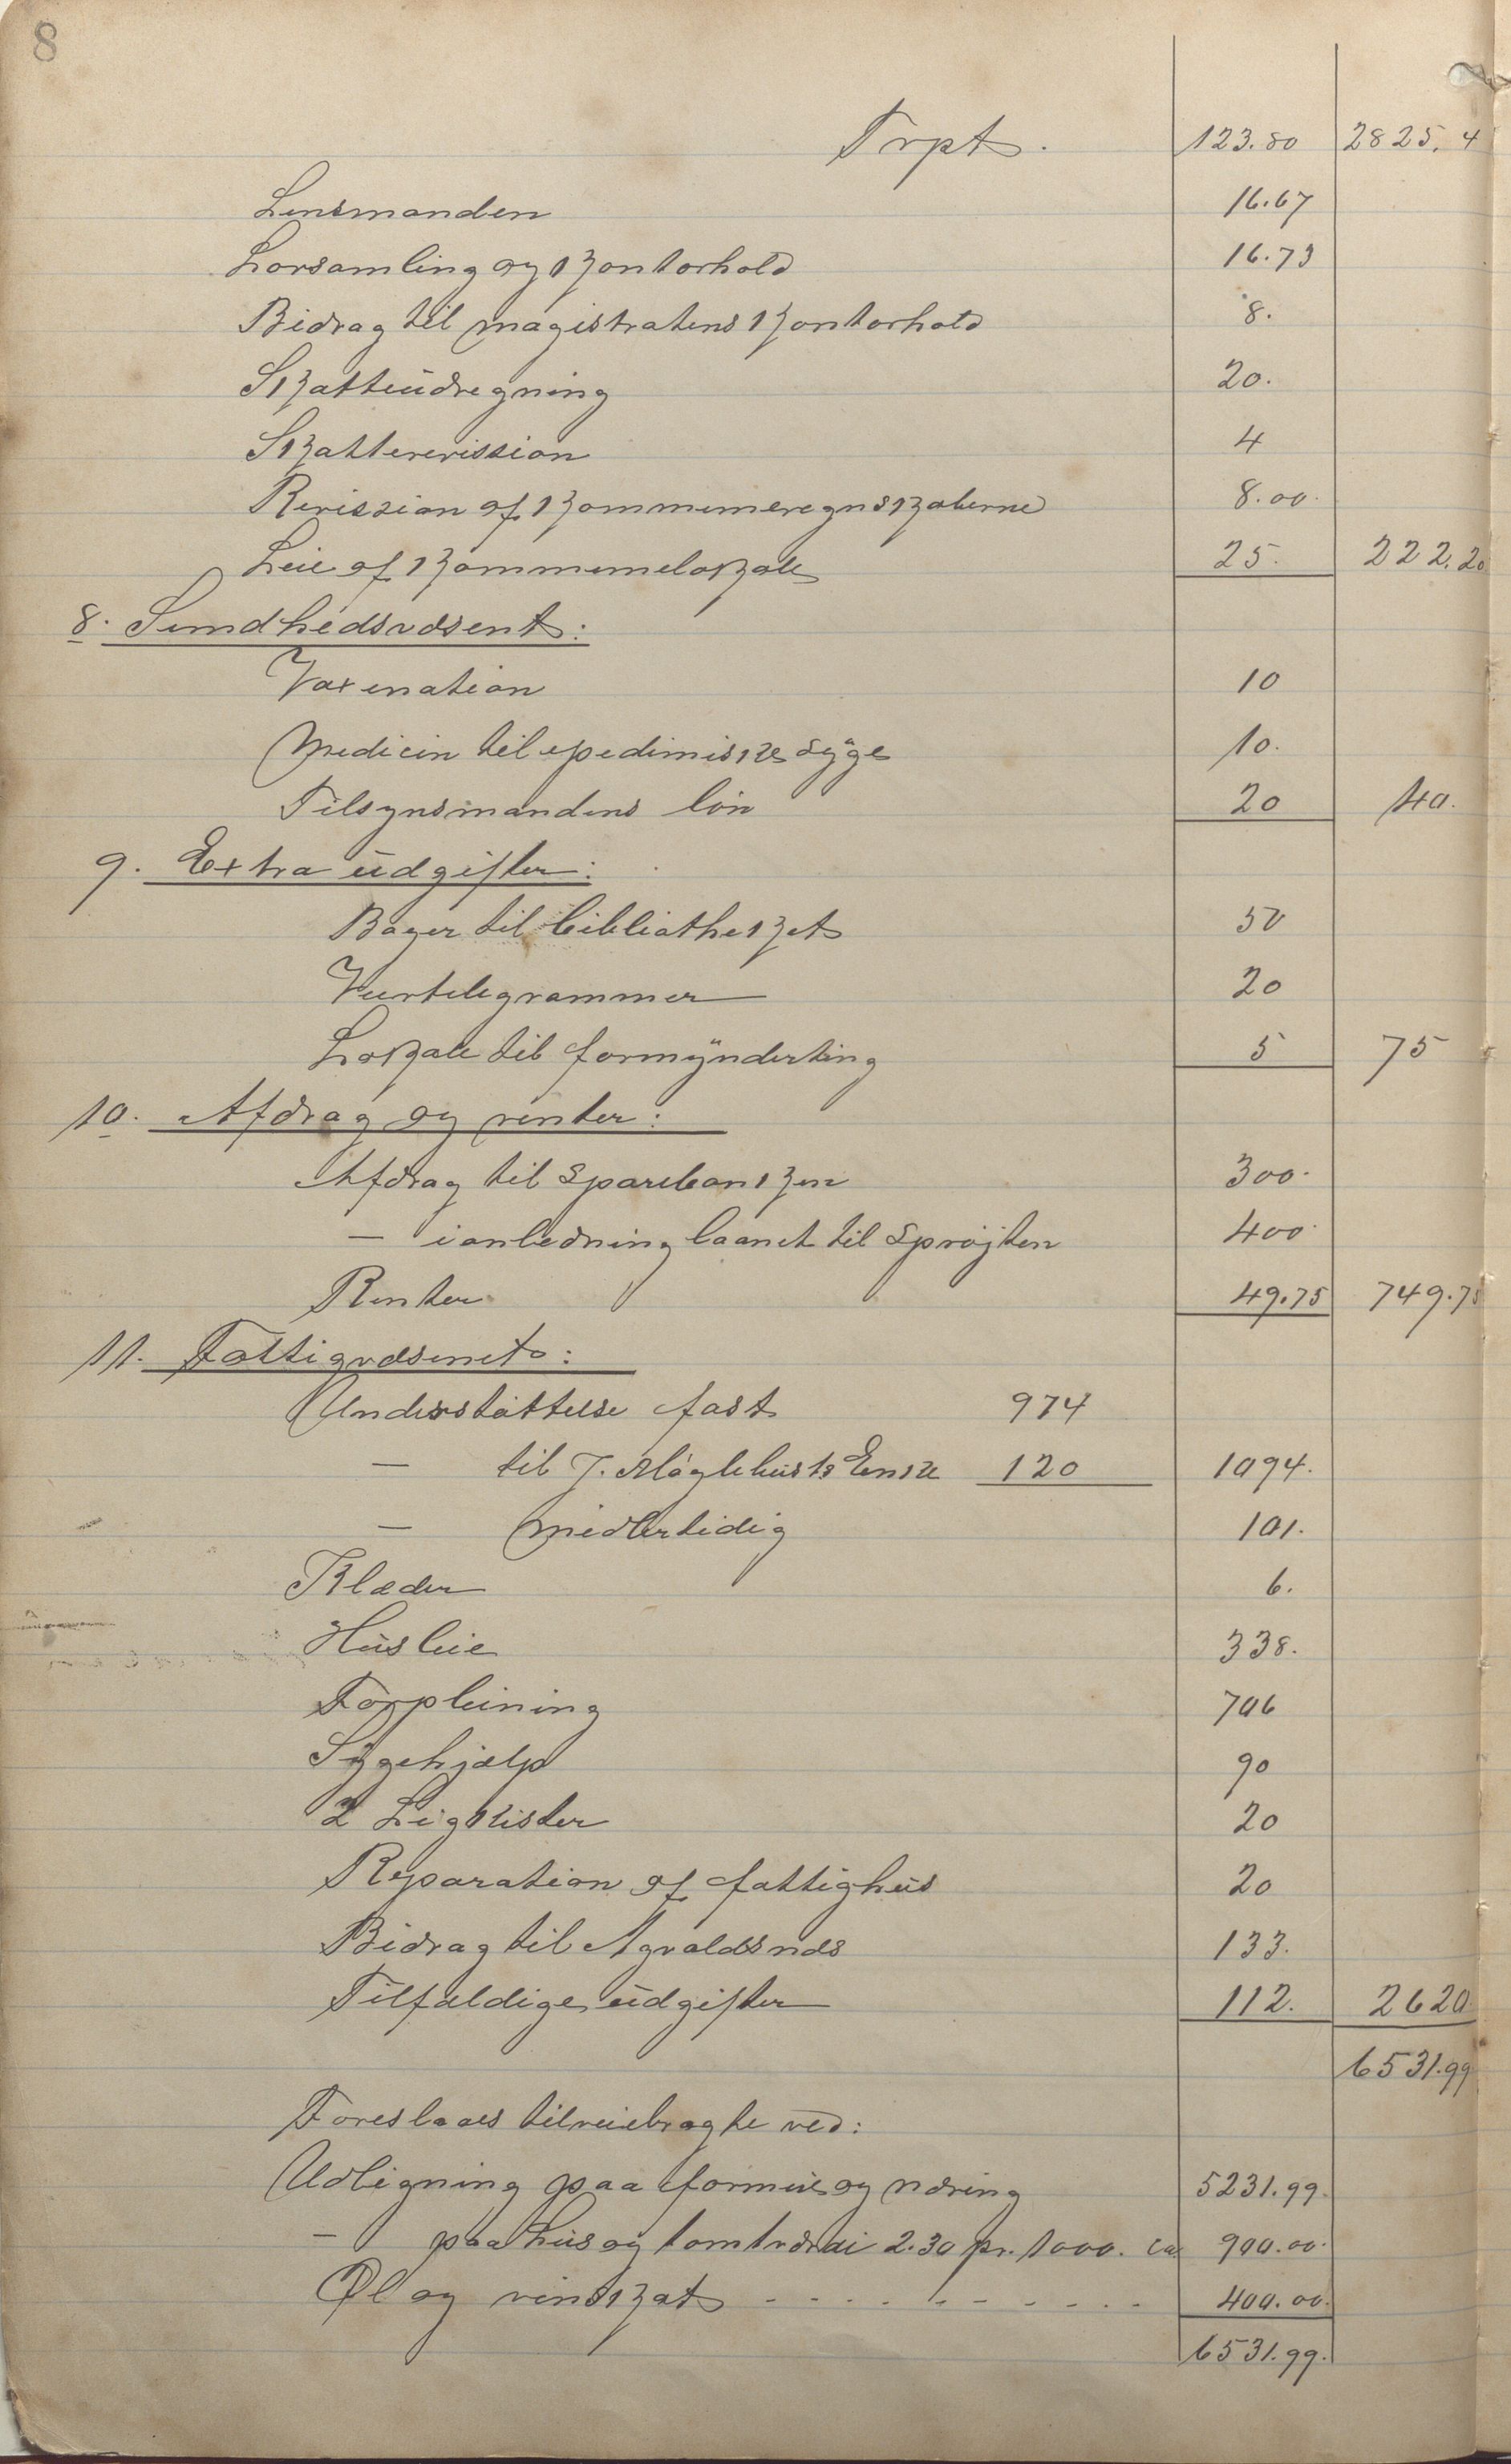 8
Trpt. 123.80 2825.4
Lensmanden 16.67
Forsamling og kontorhold 16.73
Bidrag til magistratens kontorhold 8.
Skatteudregning 20.
Skatterevission 4
Revission af kommuneregnskaberne 8.00.
Leie af kommunelokale 25. 222.20
8. Sundhedsvæsent:
Vaxination 10
Medicin til epedimiske syge 10.
Tilsynsmandens løn 20 40.
9. Extra udgifter:
Bøger til bibliotheket 50
Veirtelegrammer 20
Lokale til formynderting 5 75
10. Afdrag og renter:
Afdrag til Sparebanken 300.
— i anledning laanet til Sprøjten 400
Renter 49.75 749.75
11. Fattigvæsenet:
Understøttelse fast 974
— til J. Møglehusts Enke 120 1094.
— midlertidig 101.
Klæder 6.
Husleie 338.
Forpleining 706
Sygehjælp 90
2 Ligkister 20
Reparation af fattighus 20
Bidrag til Agvaldsnæs 133.
Tilfældige udgifter 112. 2620
6531.99
Foreslaaes tilveiebragte ved:
Udligning paa formue og næring 5231.99.
— paa hus og tomtværdi 2.30 pr. 1000. ca 900.00.
Øl og vinskat - - - - - - - - - - 400.00.
6531.99.